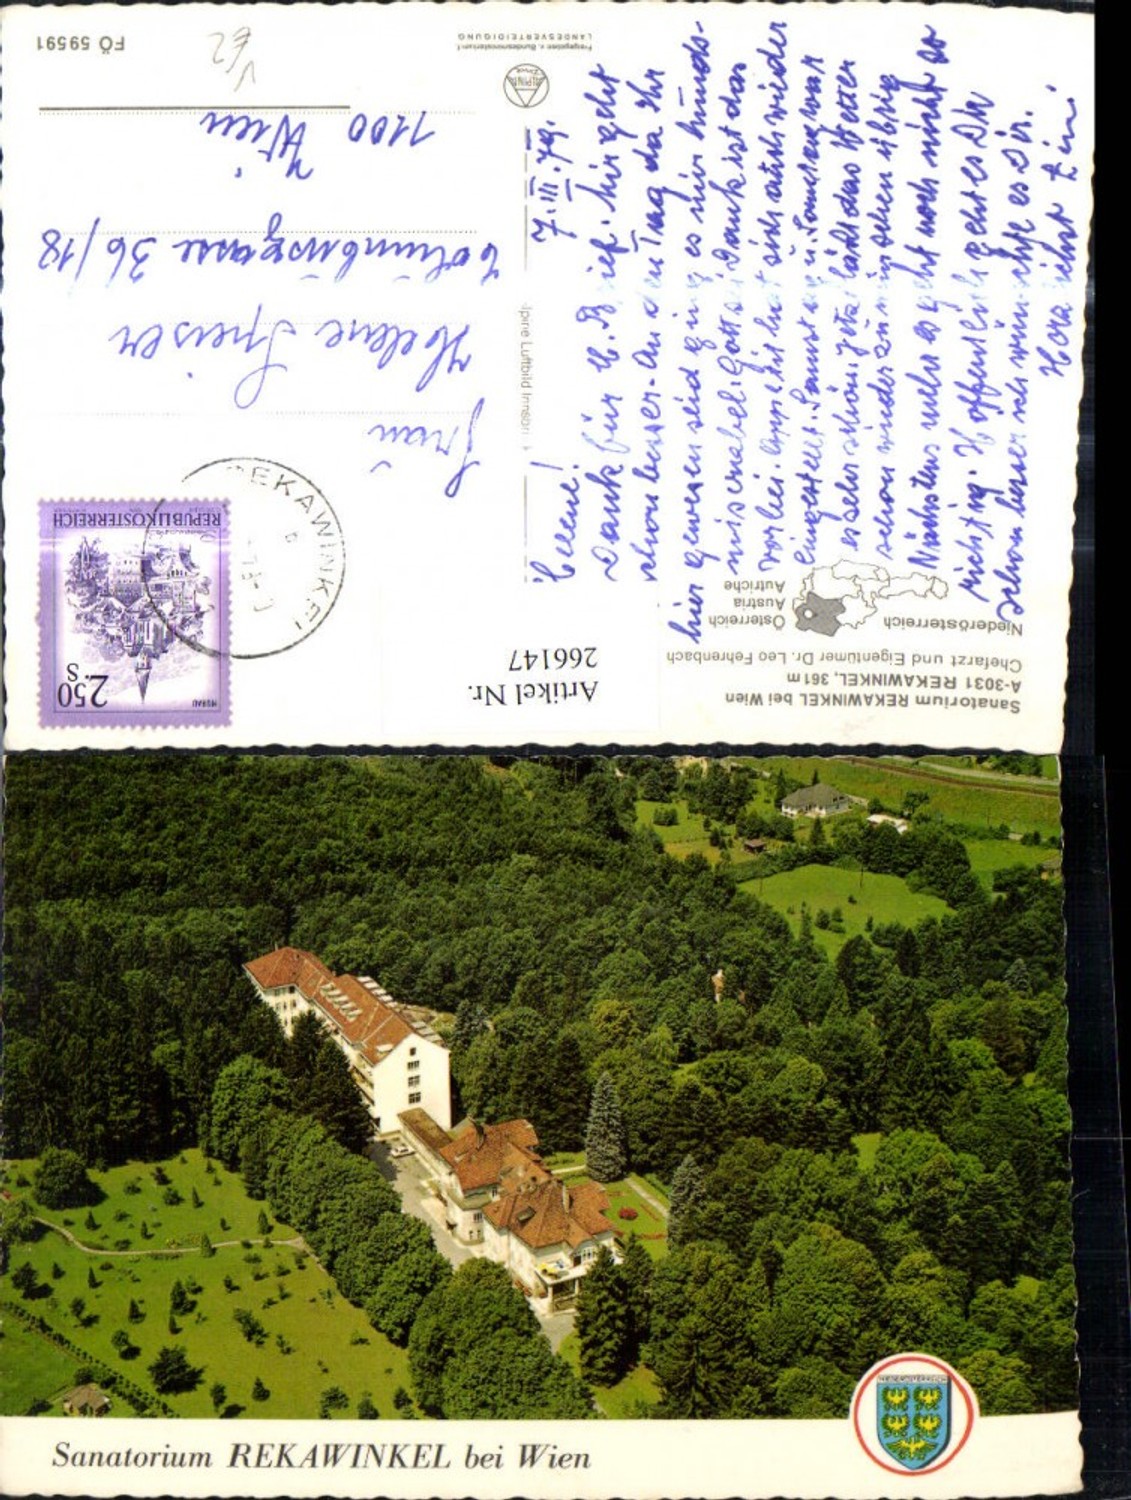 FÖ 59591
Freigegeben v. Bundesministerium f.
LANDESVERTEIDIGUNG
ALPINE
Alpine Luftbild Innsbr
REPUBLIK ÖSTERREICH
MURAU
2.50
S
REKAWINKEL
Frau
Helene
Columbusgasse 36/18
1100 Wien
7.III.79.
Helene!
Dank für Brief. Mir geht
schon besser. An dem Tag da Ihr
hier gewesen seid ging es mir hunds-
miserabel. Gott sei Dank ist das
vorbei. Appetit hat sich auch wieder
eingestellt. Samstag u. Sonntag war
es sehr schön, jetzt läßt das Wetter
schon wieder zu wünschen übrig
Nächstens mehr es geht noch nicht so
richtig. Hoffentlich geht es Dir
schon besser ich wünsche es Dir.
Artikel Nr.
266147
Niederösterreich
Österreich
Austria
Autriche
Sanatorium REKAWINKEL bei Wien
A-3031 REKAWINKEL, 361 m
Chefarzt und Eigentümer Dr. Leo Fehrenbach
Sanatorium REKAWINKEL bei Wien